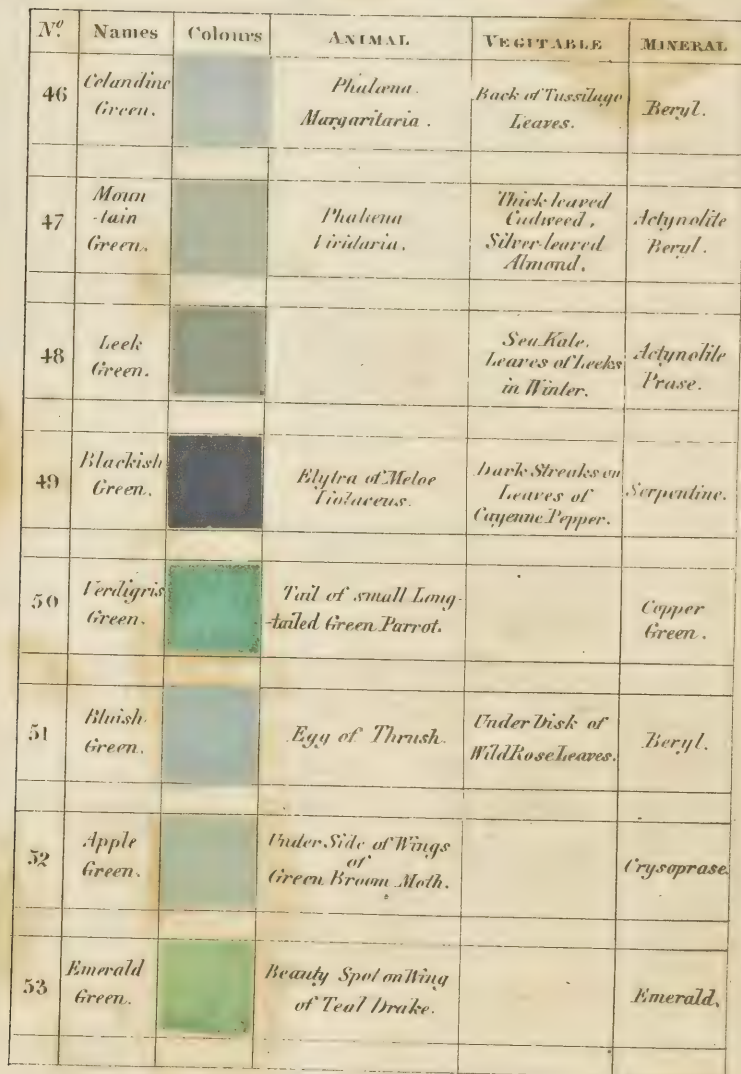 Nº. Names Colours ANIMAL VEGITABLE MINERAL
46 Celandine Green. Phalæna. Margaritaria. Back of Tussilage Leaves. Beryl.
47 Moun-tain Green. Phalæna Viridaria. Thick leaved Cudweed, Silver-leaved Almond. Actynolite Beryl.
48 Leek Green. Sea Kale. Leaves of Leeks in Winter. Actynolite Prase.
49 Blackish Green. Elytra of Meloe Violaceus. Dark Streaks on Leaves of Cayenne Pepper. Serpentine.
50 Verdigris Green. Tail of small Long-tailed Green Parrot. Copper Green.
51 Bluish Green. Egg of Thrush. Under Disk of Wild Rose Leaves. Beryl.
52 Apple Green. Under Side of Wings of Green Broom Moth. Crysoprase.
53 Emerald Green. Beauty Spot on Wing of Teal Drake. Emerald.